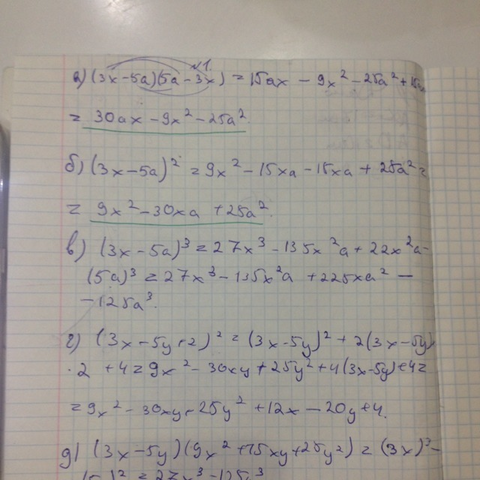 √1
а) (3x-5a)(5a-3x) = 15ax - 9x² - 25a² + 15ax
= 30ax - 9x² - 25a²
б) (3x-5a)² = 9x² - 15xa - 15xa + 25a² =
= 9x² - 30xa + 25a²
в) (3x-5a)³ = 27x³ - 135x²a + 22x²a -
(5a)³ = 27x³ - 135x²a + 225xa² -
- 125a³.
г) (3x-5y+2)² = (3x-5y)² + 2(3x-5y)
· 2 + 4 = 9x² - 30xy + 25y² + 4(3x-5y) + 4 =
= 9x² - 30xy + 25y² + 12x - 20y + 4.
д) (3x-5y)(9x² + 15xy + 25y²) = (3x)³ -
= 27x³ - 125